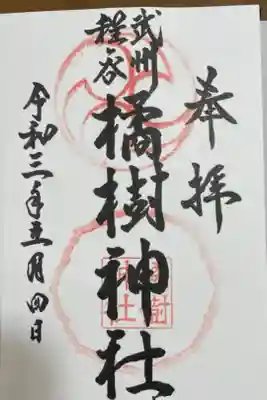 奉拝
武州
程ヶ谷
橘樹神社
令和三年五月四日
橘樹
神社